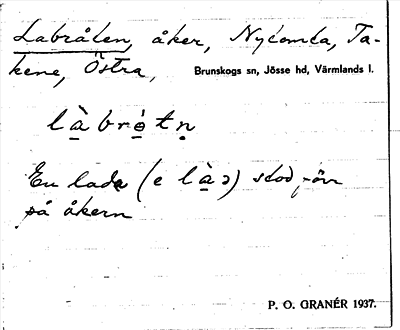 Labråten, åker, Nytomta, Ta-
kene, Östra,
Brunskogs sn, Jösse hd, Värmlands l.
là̱brò̱tṇ
En lada (e là̱ɔ) stod
på åkern
P. O. GRANÉR 1937.